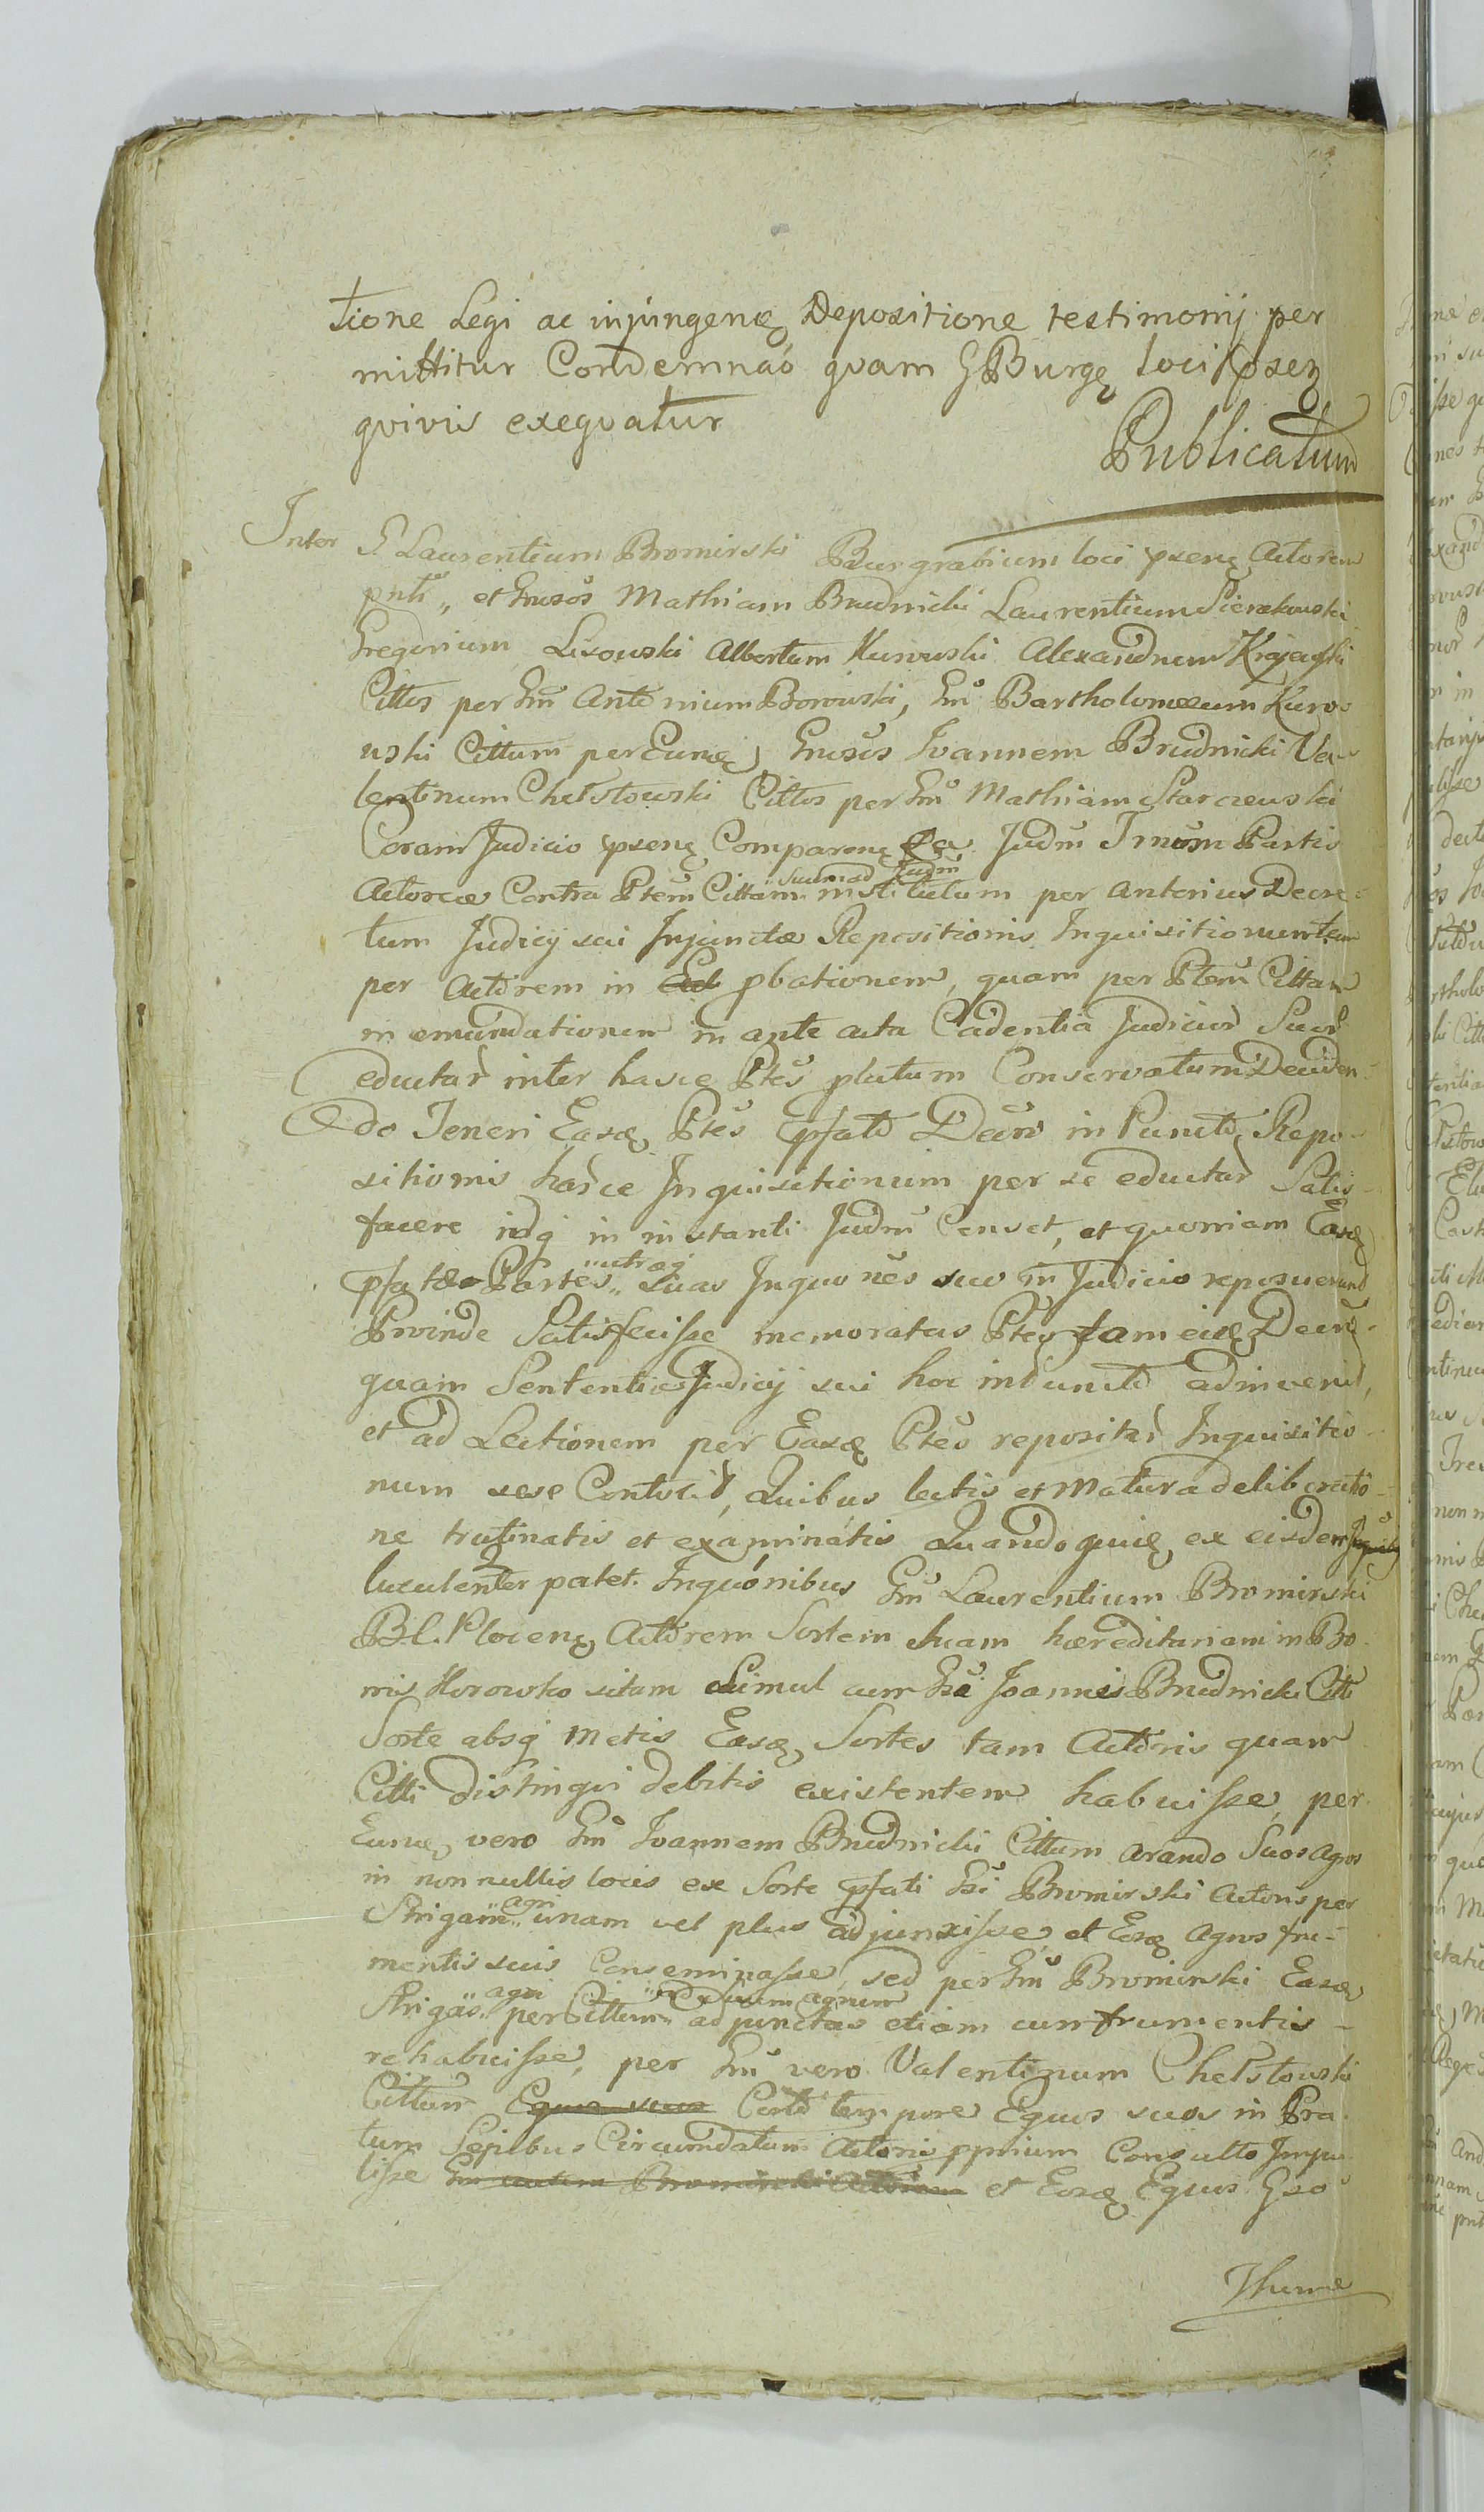 tione Legi ac injungenę Depositione testimonij per
mittitur Condemnaó quam G Burgę loci psenę
quivis exequatur
Publicatum
Inter G Laurentium Bromirski Burgrabium loci psenę Actorem
pnti„ et Gnusos Mathiam Brudnicki Laurentium Sierakowski
Gregorium Lisowski Albertum Kurowski Alexandrum
Cittos per Gm Antonium Borowski, Gm Bartholomæum Kuro-
wski Cittum per Eunę, Gnusos Ioannem Brudnicki Va-
lentinum Chełstowski Cittos per Gm Mathiam Starczewski
Coram Judicio psenę Comparenę Ea Judm Tmum Partis
Actoreæ Contra Ptem Cittam „Suum ad Judm institutum per anterius Decre-
tum Judicij sui Injunctæ Repositionis Inquisitionum tam
per Actorem in Ed pbationem, quam per Ptem Cittam
in emundationem in ante acta Cadentia Judicio Suo
eductar inter hasce Ptes plutum Conservatum Deciden-
do Teneri Easę Ptes pfato Decro in Puncto Repo-
sitionis harce Inquisitionum per se eductar Satis-
facere idq in instanti Judm Censet, et quoniam Easę
pfatæ Partes „utræq suas Inquones suo in Judicio reposuerunt
Proinde Satisfecisse memoratas Ptes tam eidę Decro
quam Sententiæ Judicij sui hoc in Puncto adinvenit,
et ad Lectionem per Easę Ptes repositar Inquisitio-
num sese Contulit, Quibus lectis et Matura deliberatio-
ne trutinatis et examinatis Quandoquidę ex eisdem
luculenter patet Inquónibus Gm Laurentium Bromirski
B. L. Plocenę Actorem Sortem suam hæreditariam in Bo-
nis sitam Simul cum Gsi Joannis Brudnicki Citti
Sorte absq Metis Easę Sortes tam Actoris quam
Citti distingui debitis existentem habuisse, per
Eunę vero Gm Ioannem Brudnicki Cittum arando Suos Agros
in non nullis locis ex Sorte pfati Gsi Bromirski Actoris per
Strigam „agri unam vel plus adjunxisse et Eosę Agros fru-
mentis suis Conseminasse, sed per Gm Bromirski Easę
Strigas „agri per Cittum „ad suum agrum adjunctas etiam cum frumentis
rehabuisse, per Gm vero Valentinum Chełstowski
Cittum Equos suos Certo tempore Equos suos in Pra-
tum Sepibus Circumdatum Actoris pprium Consulto Impu-
lisse Gm autem Bromirski Actorem et Eosę Equos Gso